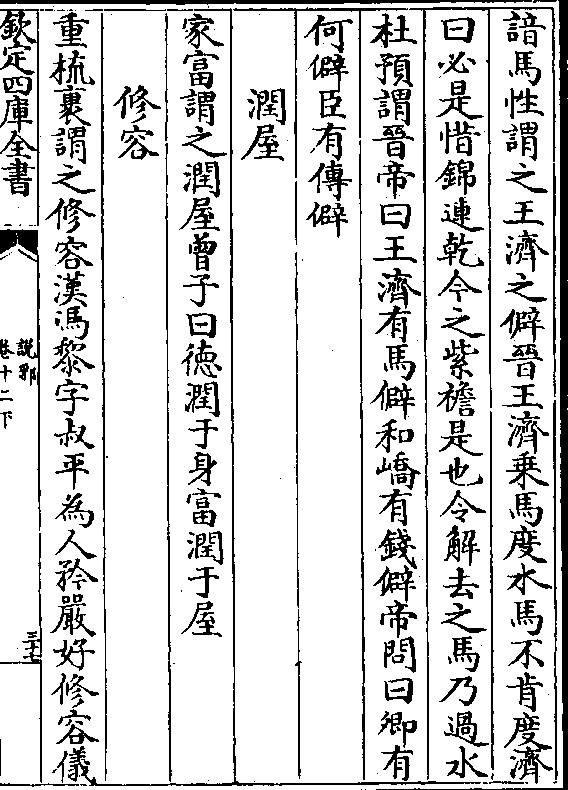 諳馬性謂之王濟之僻晉王濟乗馬度水馬不肯度濟
曰必是惜錦連乾今之紫襜是也令解去之馬乃過水
杜預謂晉帝曰王濟有馬僻和嶠有錢僻帝問曰卿有
何僻臣有傳僻
潤屋
家富謂之潤屋曾子曰徳潤于身富潤于屋
修容
重梳裹謂之修容漢馮黎字叔平為人矜嚴好修容儀
欽定四庫全書
說郛
卷十二下
三十七